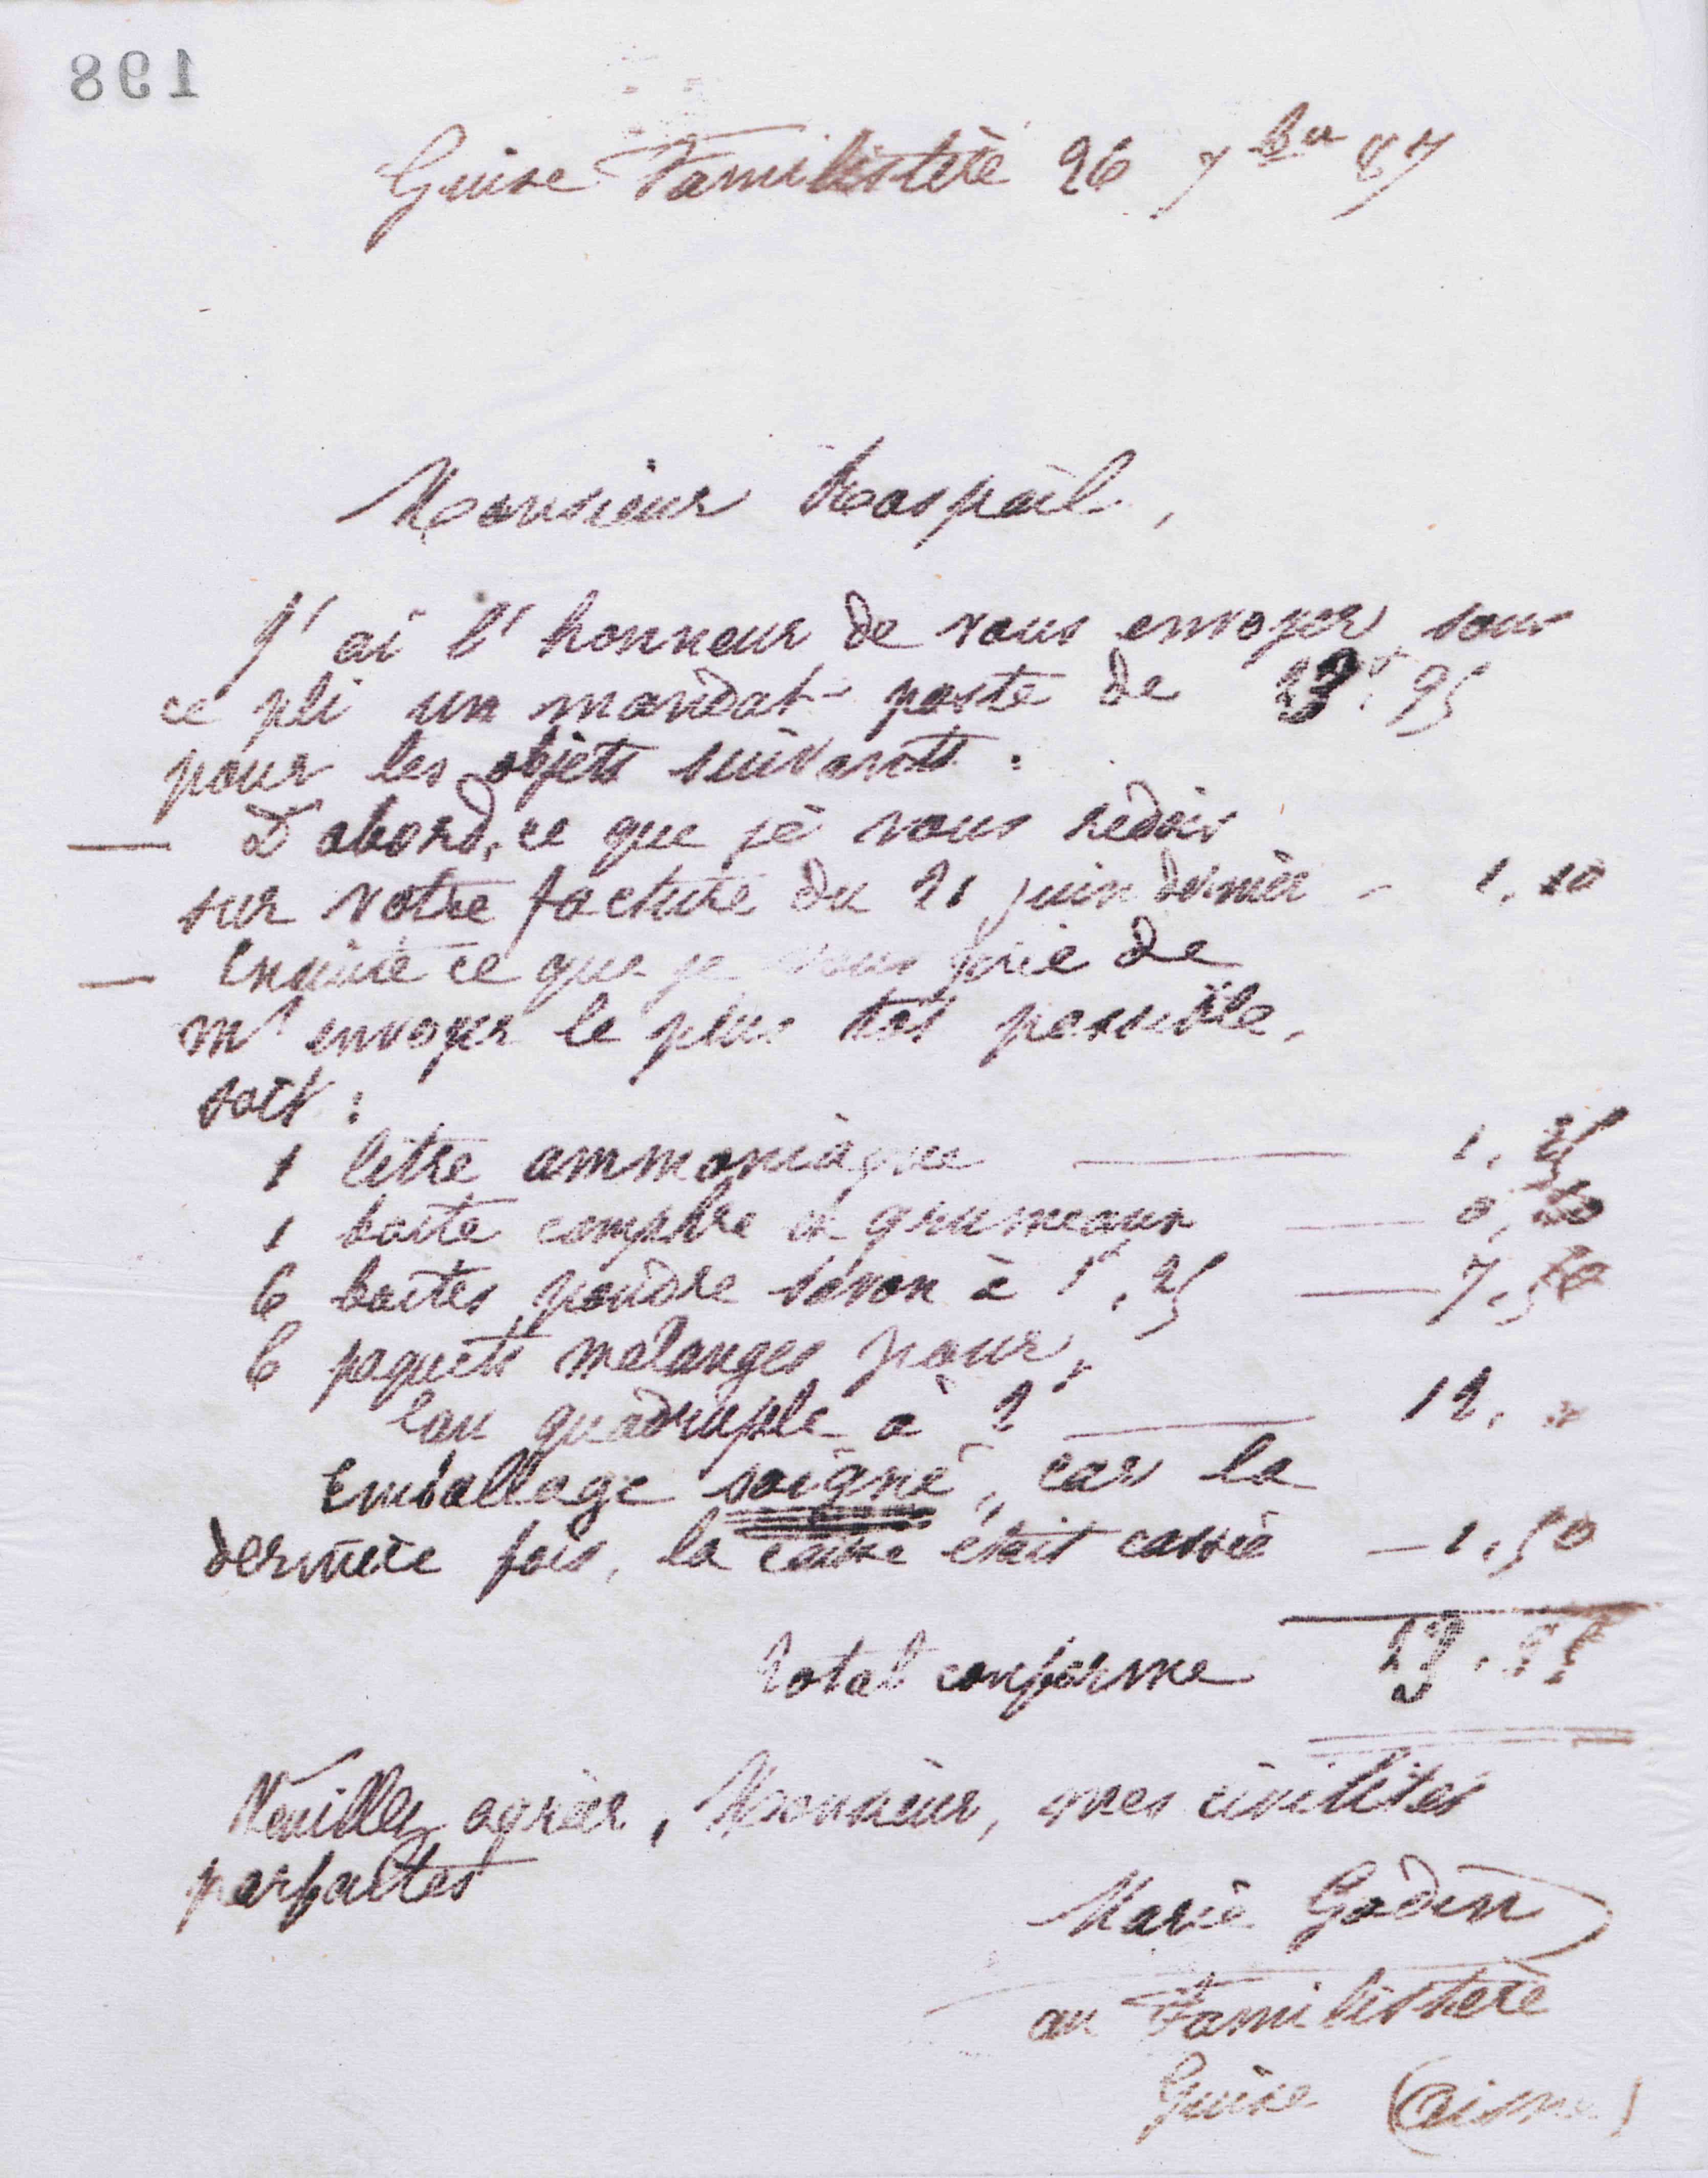 198
Guise Familistère 26 7bre 87
Monsieur Raspail,
J'ai l'honneur de vous envoyer sous
ce pli un mandat-poste de 23f.95
pour les objets suivants :
— D'abord, ce que je vous redois
sur votre facture du 21 juin dernier - 1.10
— Ensuite ce que je vous prie de
m'envoyer le plus tôt possible,
soit :
1 litre ammoniaque — 1.25
1 boite camphre en grumeaux — 0.60
6 boites poudre savon à 1f.25 — 7.50
6 paquets mélanges pour
eau quadruple à 2f — 12. "
Emballage soigné, car la
dernière fois, la caisse était cassée — 1.50
Total conforme 23.95
Veuillez agréer, Monsieur, mes civilités
parfaites
Marie Godin
au Familistère
Guise (Aisne)